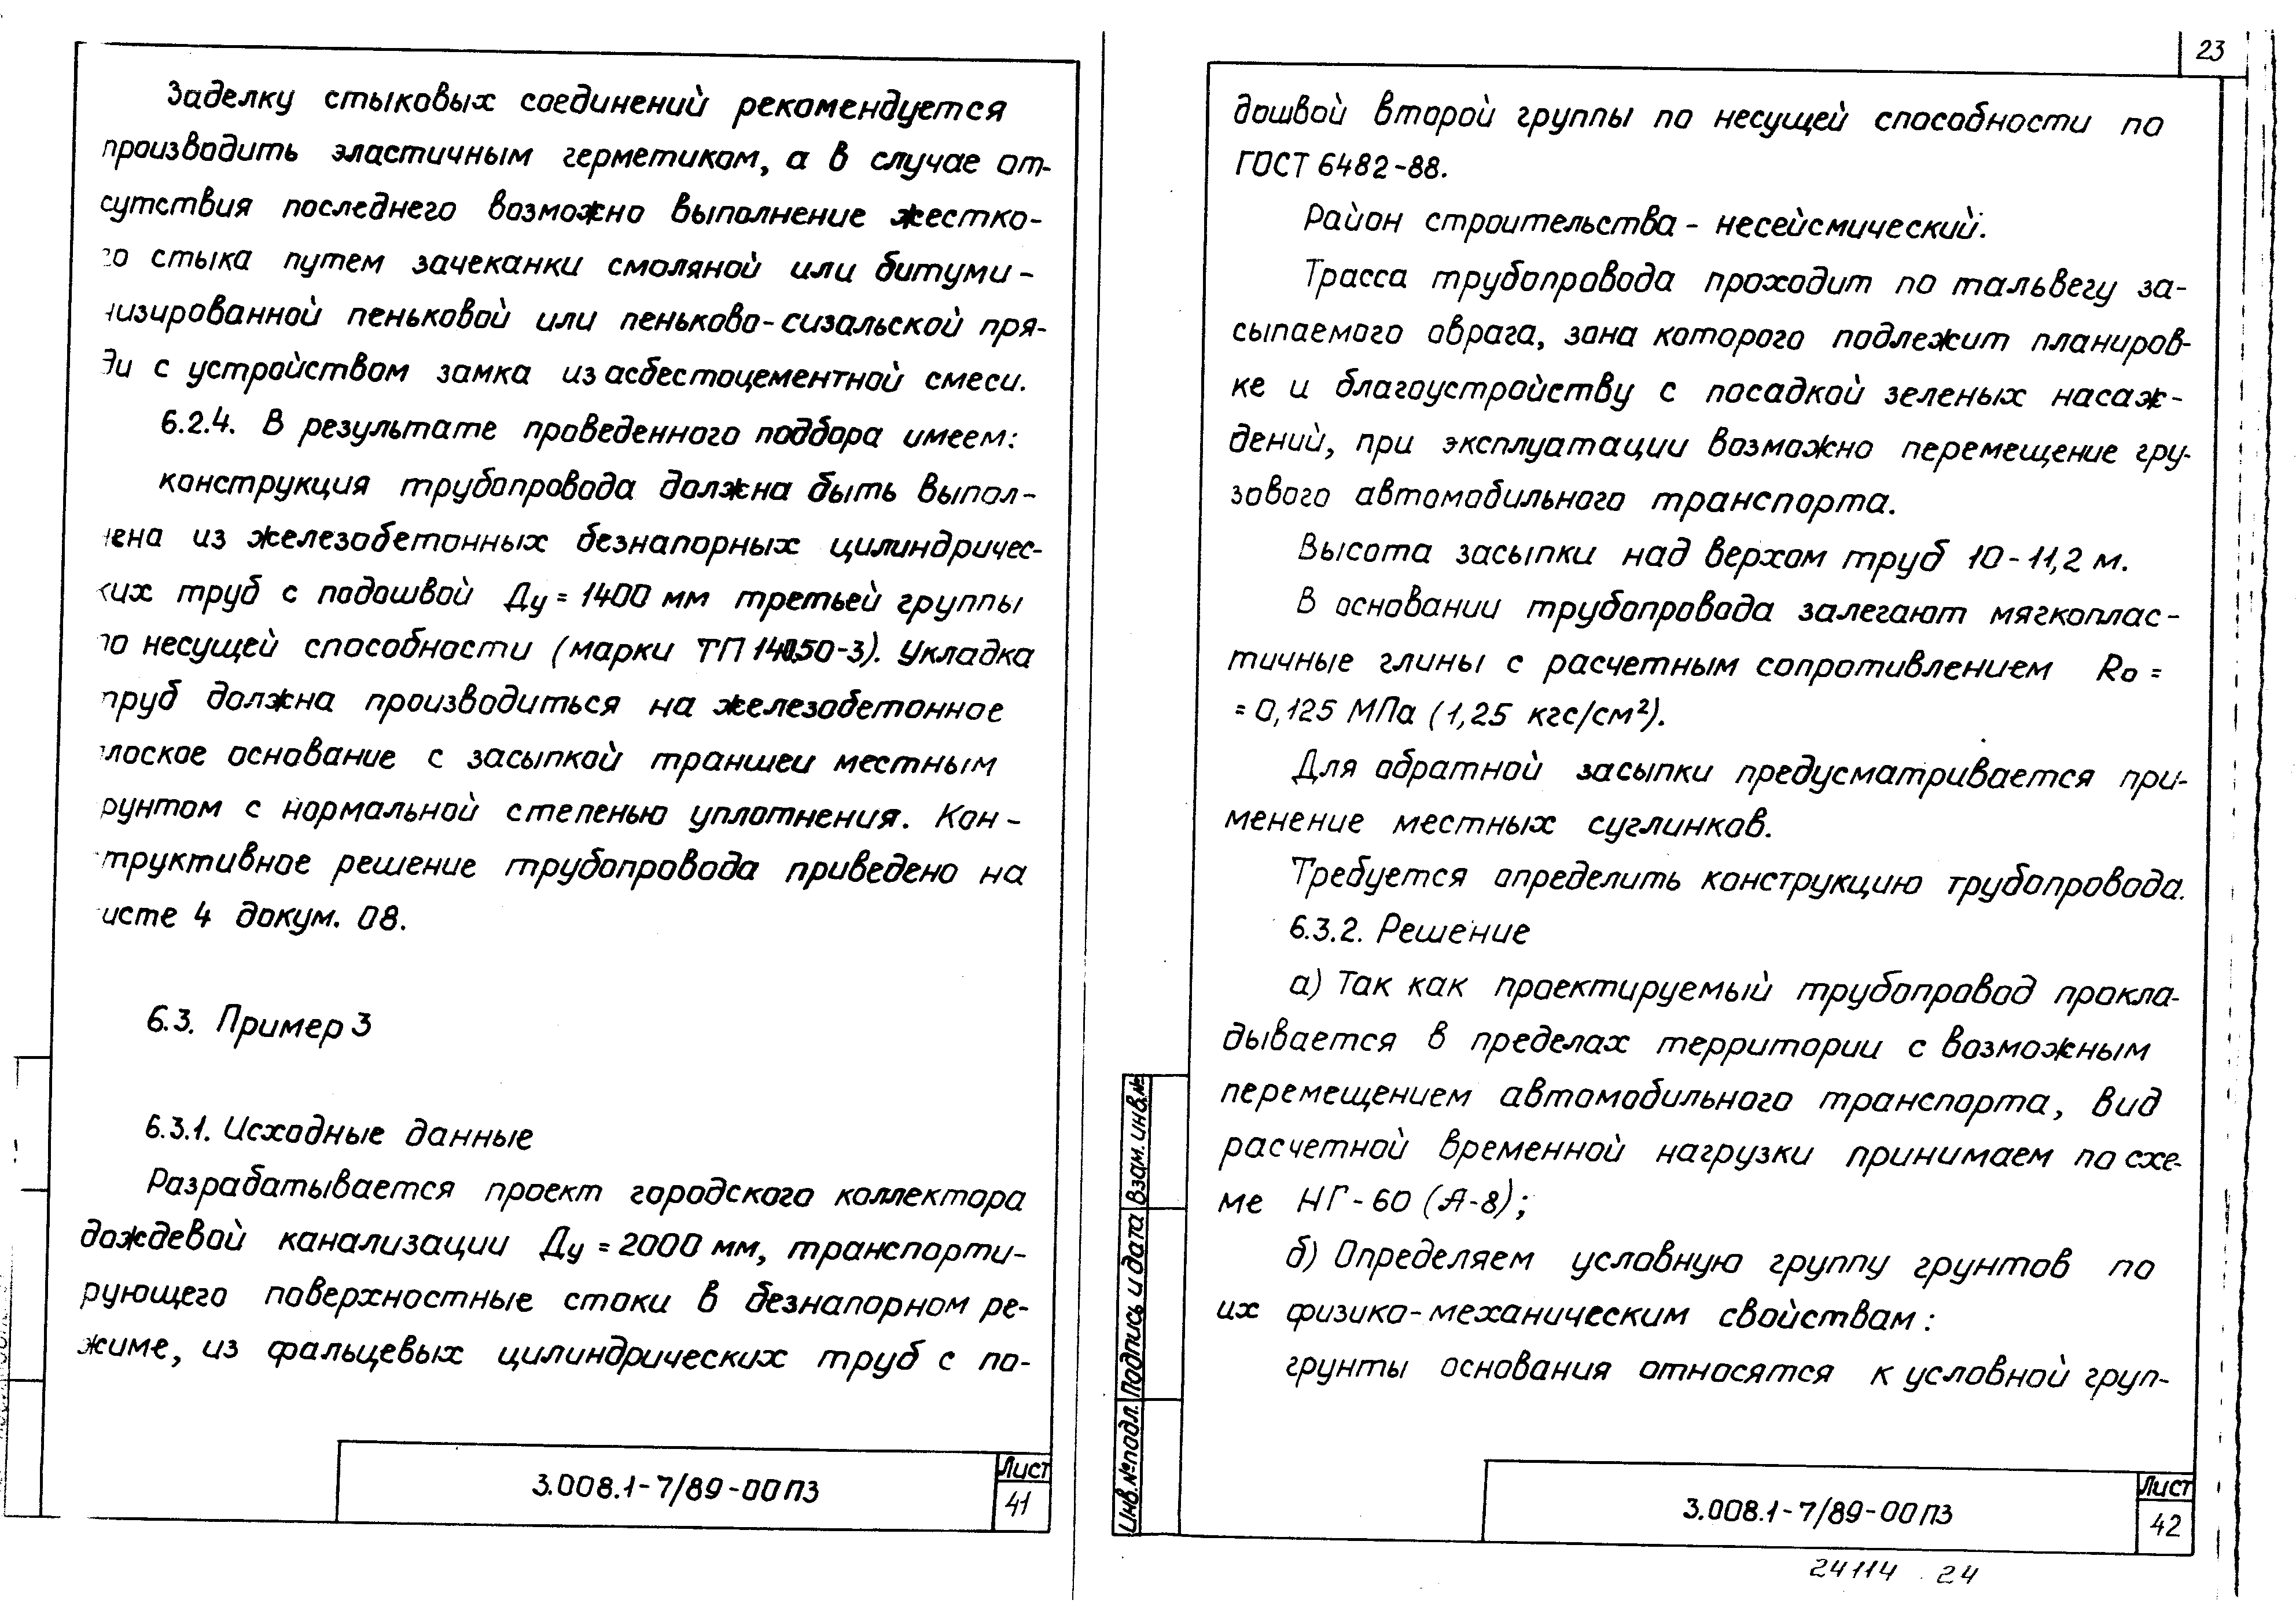 Заделку стыковых соединений рекомендуется
производить эластичным герметиком, а в случае от-
сутствия последнего возможно выполнение жестко-
го стыка путем зачеканки смоляной или битуми-
низированной пеньковой или пеньково-сизальской пря-
ди с устройством замка из асбестоцементной смеси.
6.2.4. В результате проведенного подбора имеем:
конструкция трубопровода должна быть выпол-
нена из железобетонных безнапорных цилиндричес-
ких труб с подошвой Ду = 1400 мм третьей группы
по несущей способности (марки ТП 140.50-3). Укладка
труб должна производиться на железобетонное
плоское основание с засыпкой траншеи местным
грунтом с нормальной степенью уплотнения. Кон-
структивное решение трубопровода приведено на
листе 4 докум. 08.
6.3. Пример 3
6.3.1. Исходные данные
Разрабатывается проект городского коллектора
дождевой канализации Ду = 2000 мм, транспорти-
рующего поверхностные стоки в безнапорном ре-
жиме, из фальцевых цилиндрических труб с по-
3.008.1-7/89-00ПЗ
Лист
41
23
дошвой второй группы по несущей способности по
ГОСТ 6482-88.
Район строительства - несейсмический.
Трасса трубопровода проходит по тальвегу за-
сыпаемого оврага, зона которого подлежит планиров-
ке и благоустройству с посадкой зеленых насаж-
дений, при эксплуатации возможно перемещение гру-
зового автомобильного транспорта.
Высота засыпки над верхом труб 10-11,2 м.
В основании трубопровода залегают мягкоплас-
тичные глины с расчетным сопротивлением Rо =
= 0,125 МПа (1,25 кгс/см²).
Для обратной засыпки предусматривается при-
менение местных суглинков.
Требуется определить конструкцию трубопровода.
6.3.2. Решение
а) Так как проектируемый трубопровод прокла-
дывается в пределах территории с возможным
перемещением автомобильного транспорта, вид
расчетной временной нагрузки принимаем по схе-
ме НГ-60 (А-8);
б) Определяем условную группу грунтов по
их физико-механическим свойствам:
грунты основания относятся к условной груп-
Взам. инв.№
Подпись и дата
Инв.№подл.
3.008.1-7/89-00ПЗ
Лист
42
24114 24